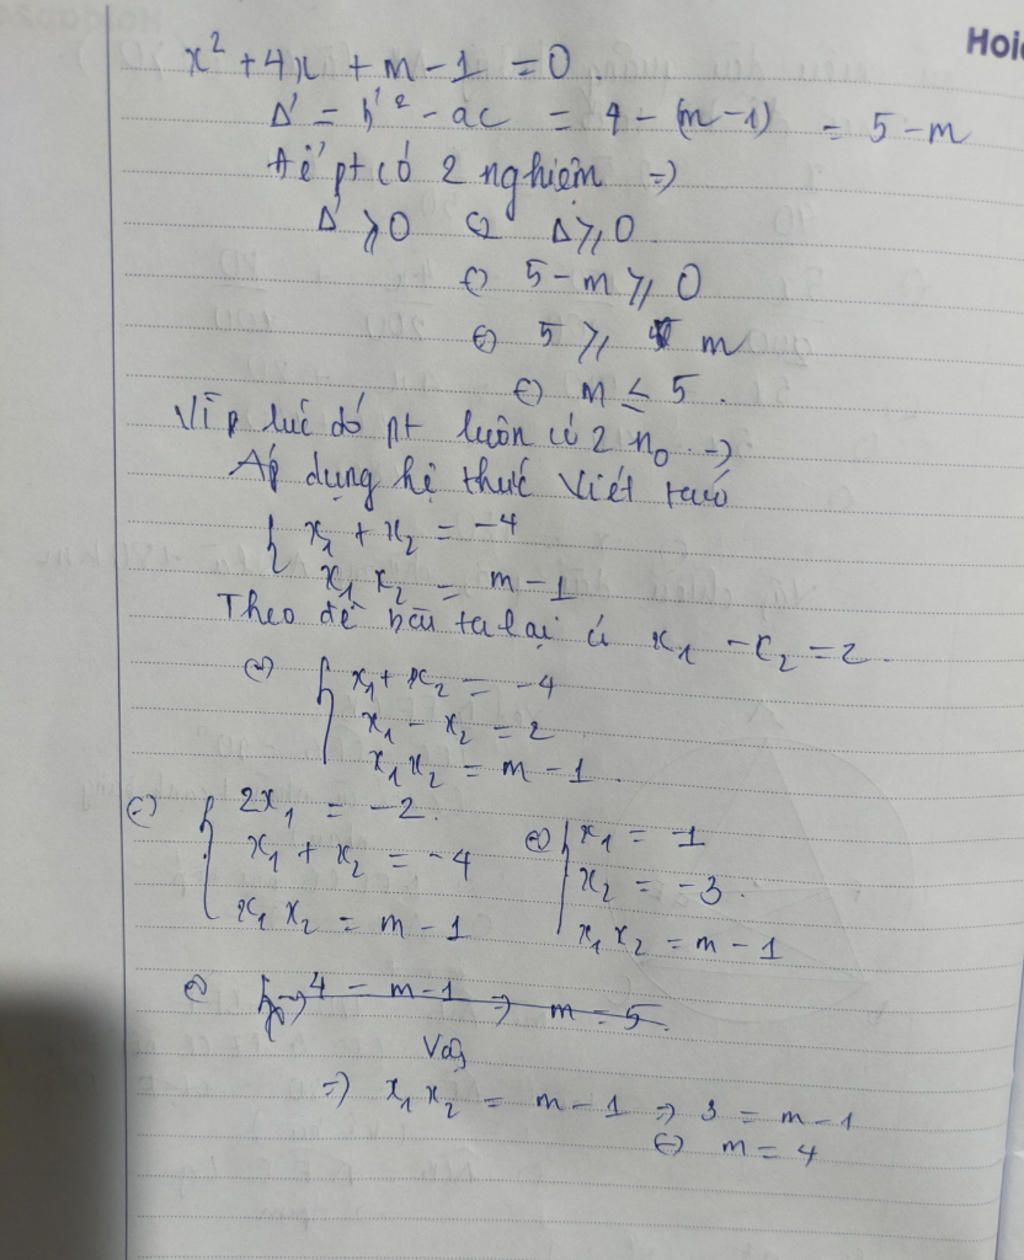 Hoi
x² + 4x + m - 1 = 0.
Δ' = b'² - ac = 4 - (m - 1) = 5 - m
Để pt có 2 nghiệm ⇒
Δ' ≥ 0 ⇔ Δ ≥ 0.
⇔ 5 - m ≥ 0
⇔ 5 ≥ m
⇔ m ≤ 5.
Vì lúc đó pt luôn có 2 n₀ ⇒
Áp dụng hệ thức Viét ta có
{ x₁ + x₂ = -4
x₁ x₂ = m - 1
Theo đề bài ta lại có x₁ - x₂ = 2.
⇔ { x₁ + x₂ = -4
x₁ - x₂ = 2
x₁ x₂ = m - 1.
⇔ { 2x₁ = -2.
x₁ + x₂ = -4
x₁ x₂ = m - 1
⇔ { x₁ = -1
x₂ = -3.
x₁ x₂ = m - 1
⇔ 4 = m - 1 ⇒ m = 5.
Vậy
⇒ x₁ x₂ = m - 1 ⇒ 3 = m - 1
⇔ m = 4